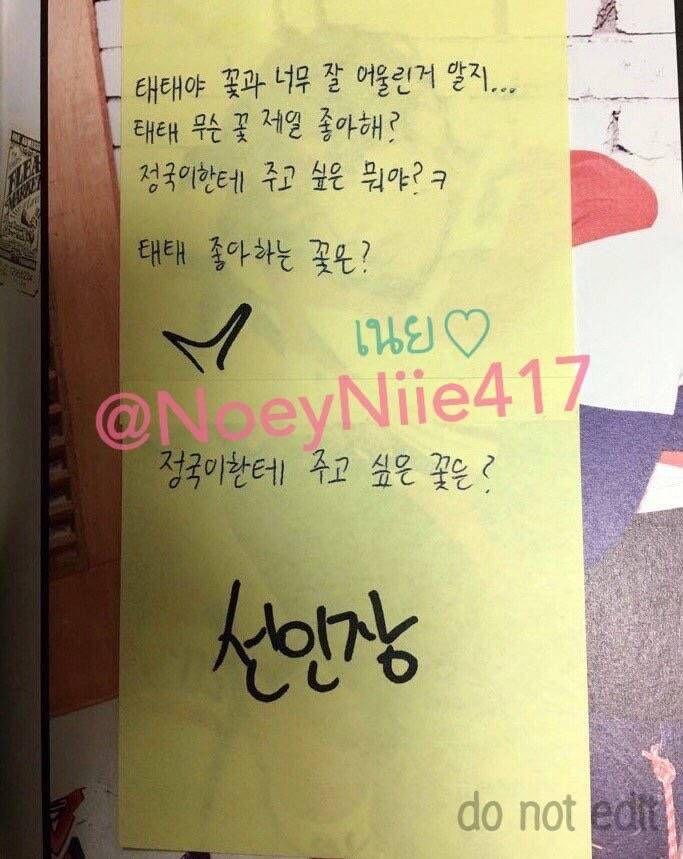 태태야 꽃과 너무 잘 어울린거 알지...
태태 무슨 꽃 제일 좋아해?
정국이한테 주고 싶은 뭐야?ㅋ
태태 좋아하는 꽃은?
너
เนย♡
@NoeyNiie417
정국이한테 주고 싶은 꽃은?
선인장
do not edit